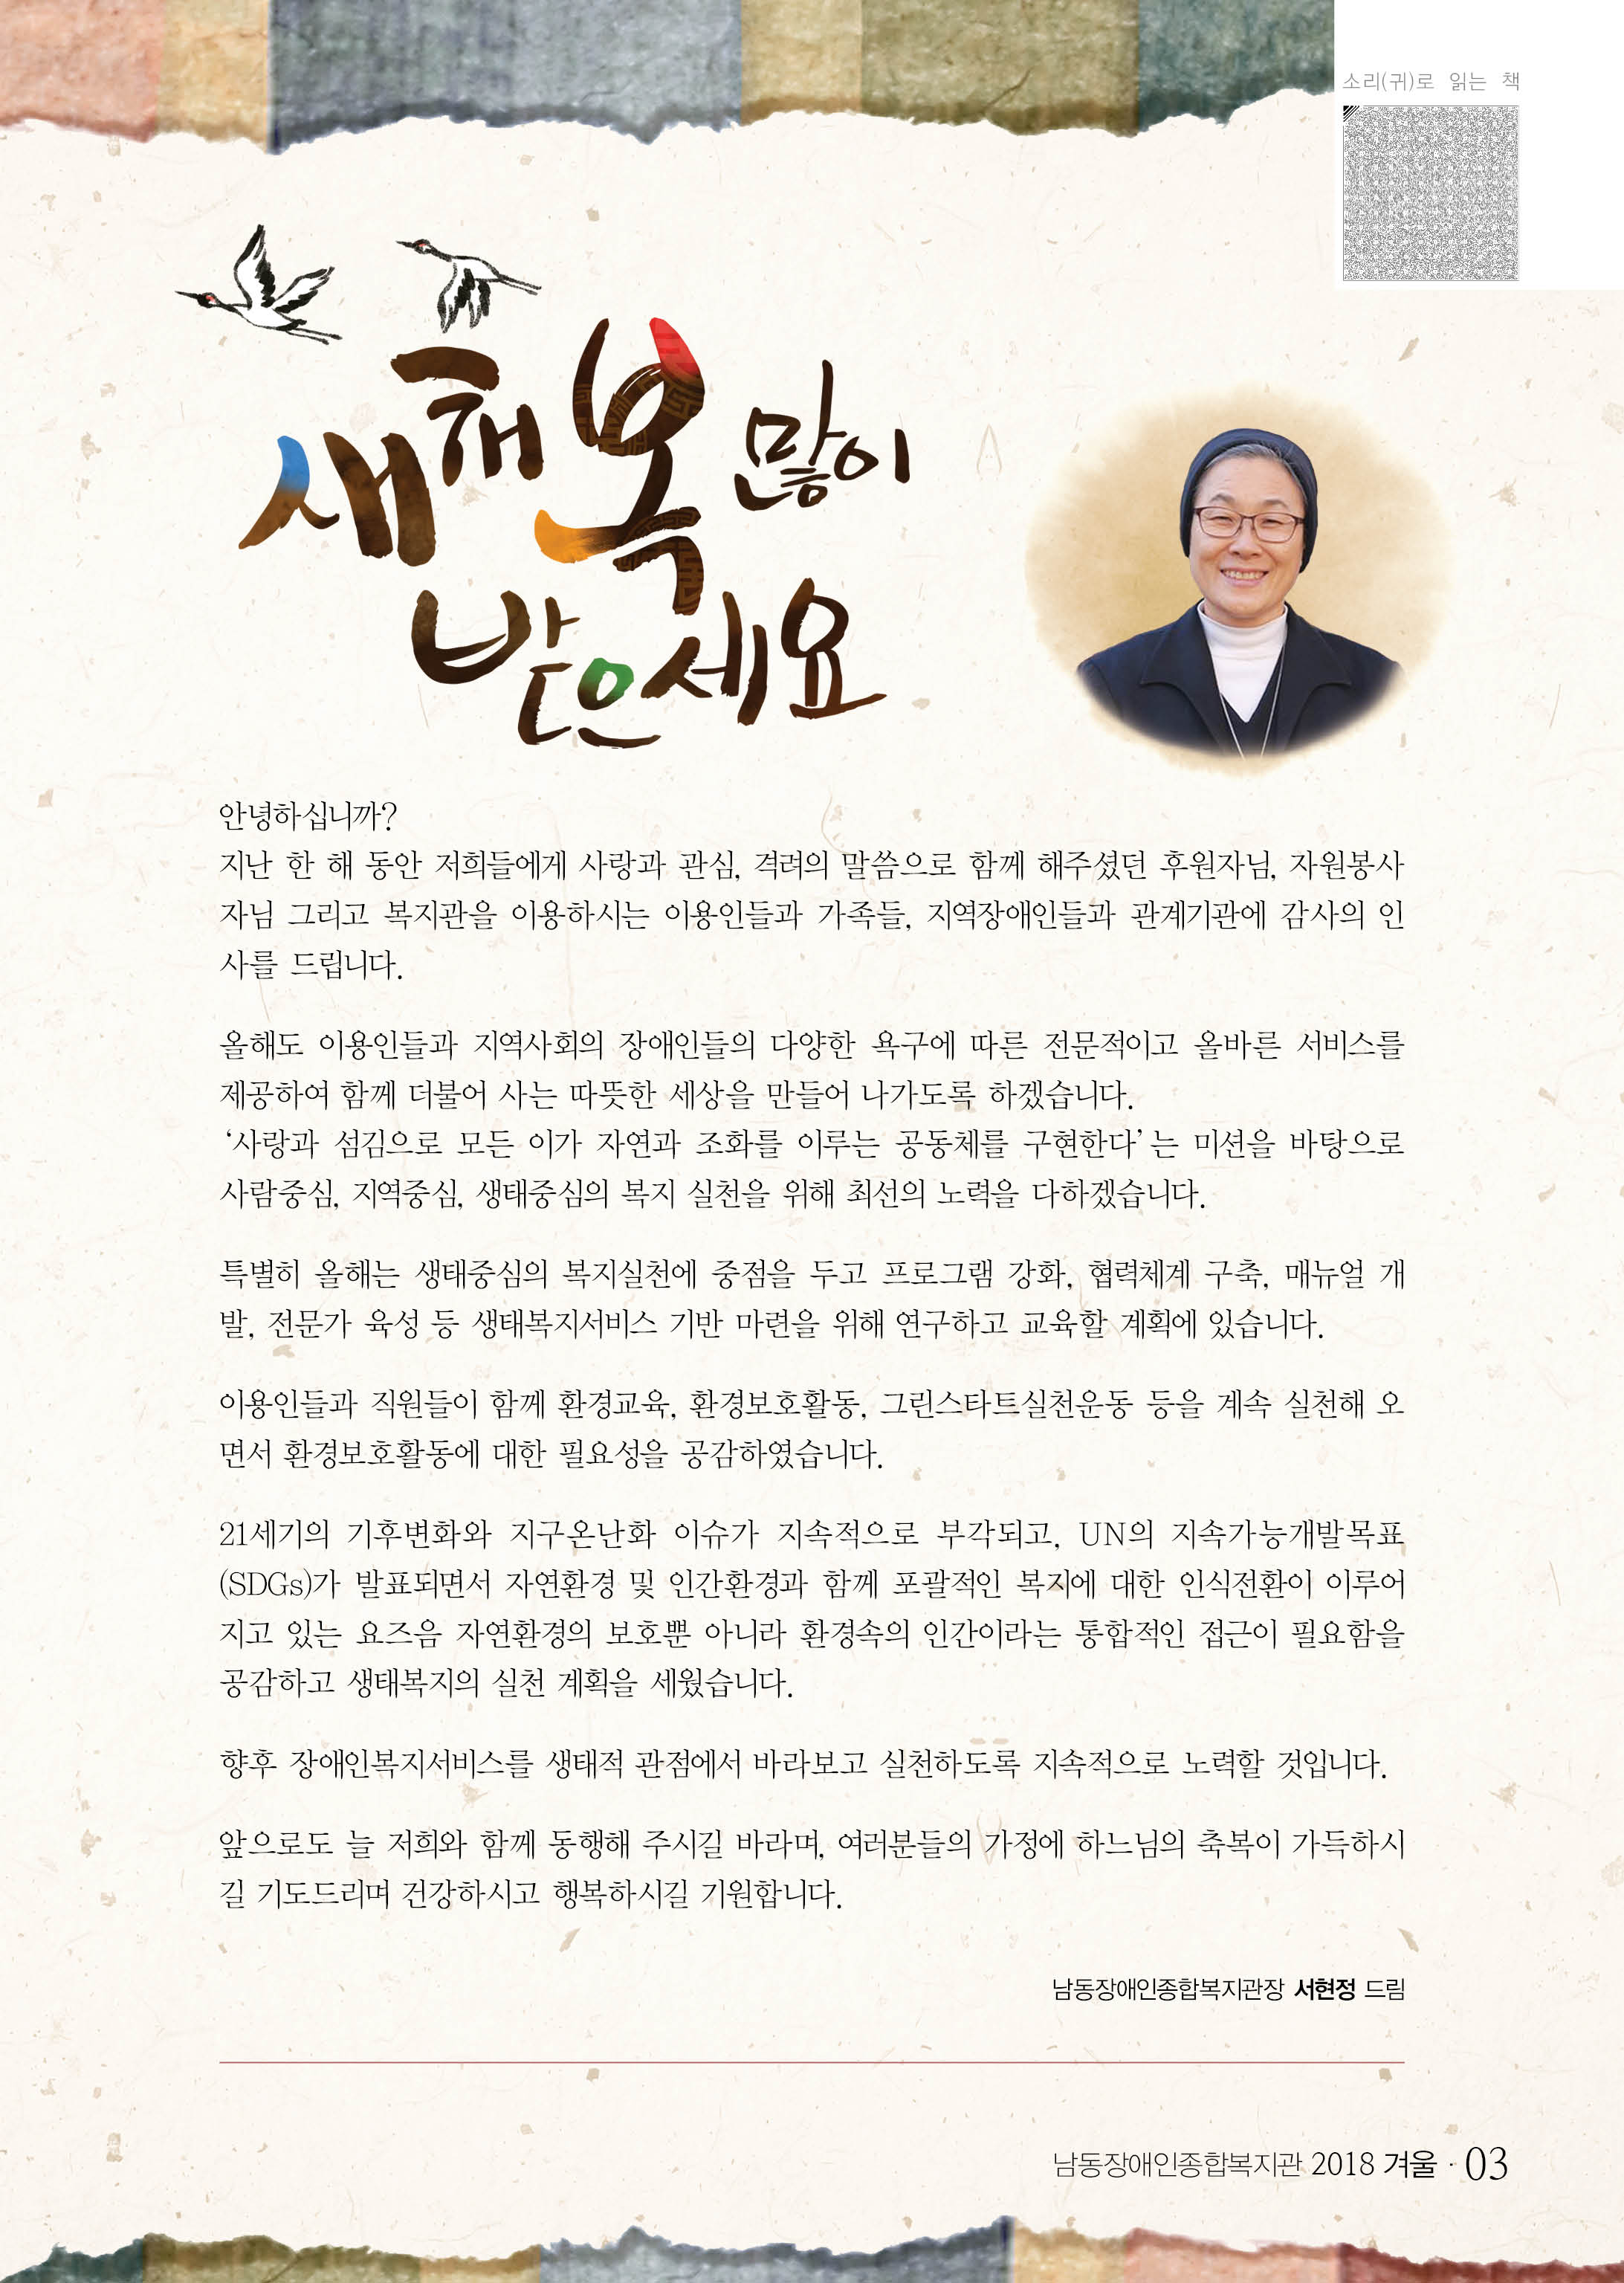 소리(귀)로 읽는 책
새해 복 많이
받으세요
안녕하십니까?
지난 한 해 동안 저희들에게 사랑과 관심, 격려의 말씀으로 함께 해주셨던 후원자님, 자원봉사
자님 그리고 복지관을 이용하시는 이용인들과 가족들, 지역장애인들과 관계기관에 감사의 인
사를 드립니다.
올해도 이용인들과 지역사회의 장애인들의 다양한 욕구에 따른 전문적이고 올바른 서비스를
제공하여 함께 더불어 사는 따뜻한 세상을 만들어 나가도록 하겠습니다.
‘사랑과 섬김으로 모든 이가 자연과 조화를 이루는 공동체를 구현한다’는 미션을 바탕으로
사람중심, 지역중심, 생태중심의 복지 실천을 위해 최선의 노력을 다하겠습니다.
특별히 올해는 생태중심의 복지실천에 중점을 두고 프로그램 강화, 협력체계 구축, 매뉴얼 개
발, 전문가 육성 등 생태복지서비스 기반 마련을 위해 연구하고 교육할 계획에 있습니다.
이용인들과 직원들이 함께 환경교육, 환경보호활동, 그린스타트실천운동 등을 계속 실천해 오
면서 환경보호활동에 대한 필요성을 공감하였습니다.
21세기의 기후변화와 지구온난화 이슈가 지속적으로 부각되고, UN의 지속가능개발목표
(SDGs)가 발표되면서 자연환경 및 인간환경과 함께 포괄적인 복지에 대한 인식전환이 이루어
지고 있는 요즈음 자연환경의 보호뿐 아니라 환경속의 인간이라는 통합적인 접근이 필요함을
공감하고 생태복지의 실천 계획을 세웠습니다.
향후 장애인복지서비스를 생태적 관점에서 바라보고 실천하도록 지속적으로 노력할 것입니다.
앞으로도 늘 저희와 함께 동행해 주시길 바라며, 여러분들의 가정에 하느님의 축복이 가득하시
길 기도드리며 건강하시고 행복하시길 기원합니다.
남동장애인종합복지관장 서현정 드림
남동장애인종합복지관 2018 겨울 · 03